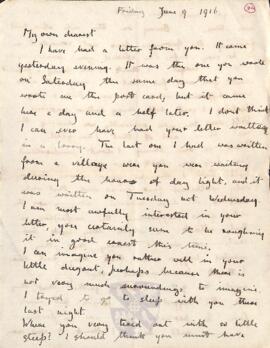 Friday June 9 1916.
My own dearest
I have had a letter from you. It came
yesterday evening. It was the one you wrote
on Saturday the same day that you
wrote me the post card, but it came
here a day and a half later. I dont think
I can ever have had your letter written
in a lorry. The last one I had was written
from a village were you were waiting
during the hours of day light, and it
was written on Tuesday not Wednesday.
I am most awfully interested in your
letter, you certainly seem to be roughing
it in good earnest this time.
I can imagine you rather well in your
little dugout, perhaps because there is
not very much surroundings to imagine
I tryed to go to sleep with you there
last night.
Where you very tired out with so little
sleep? I should think you must have